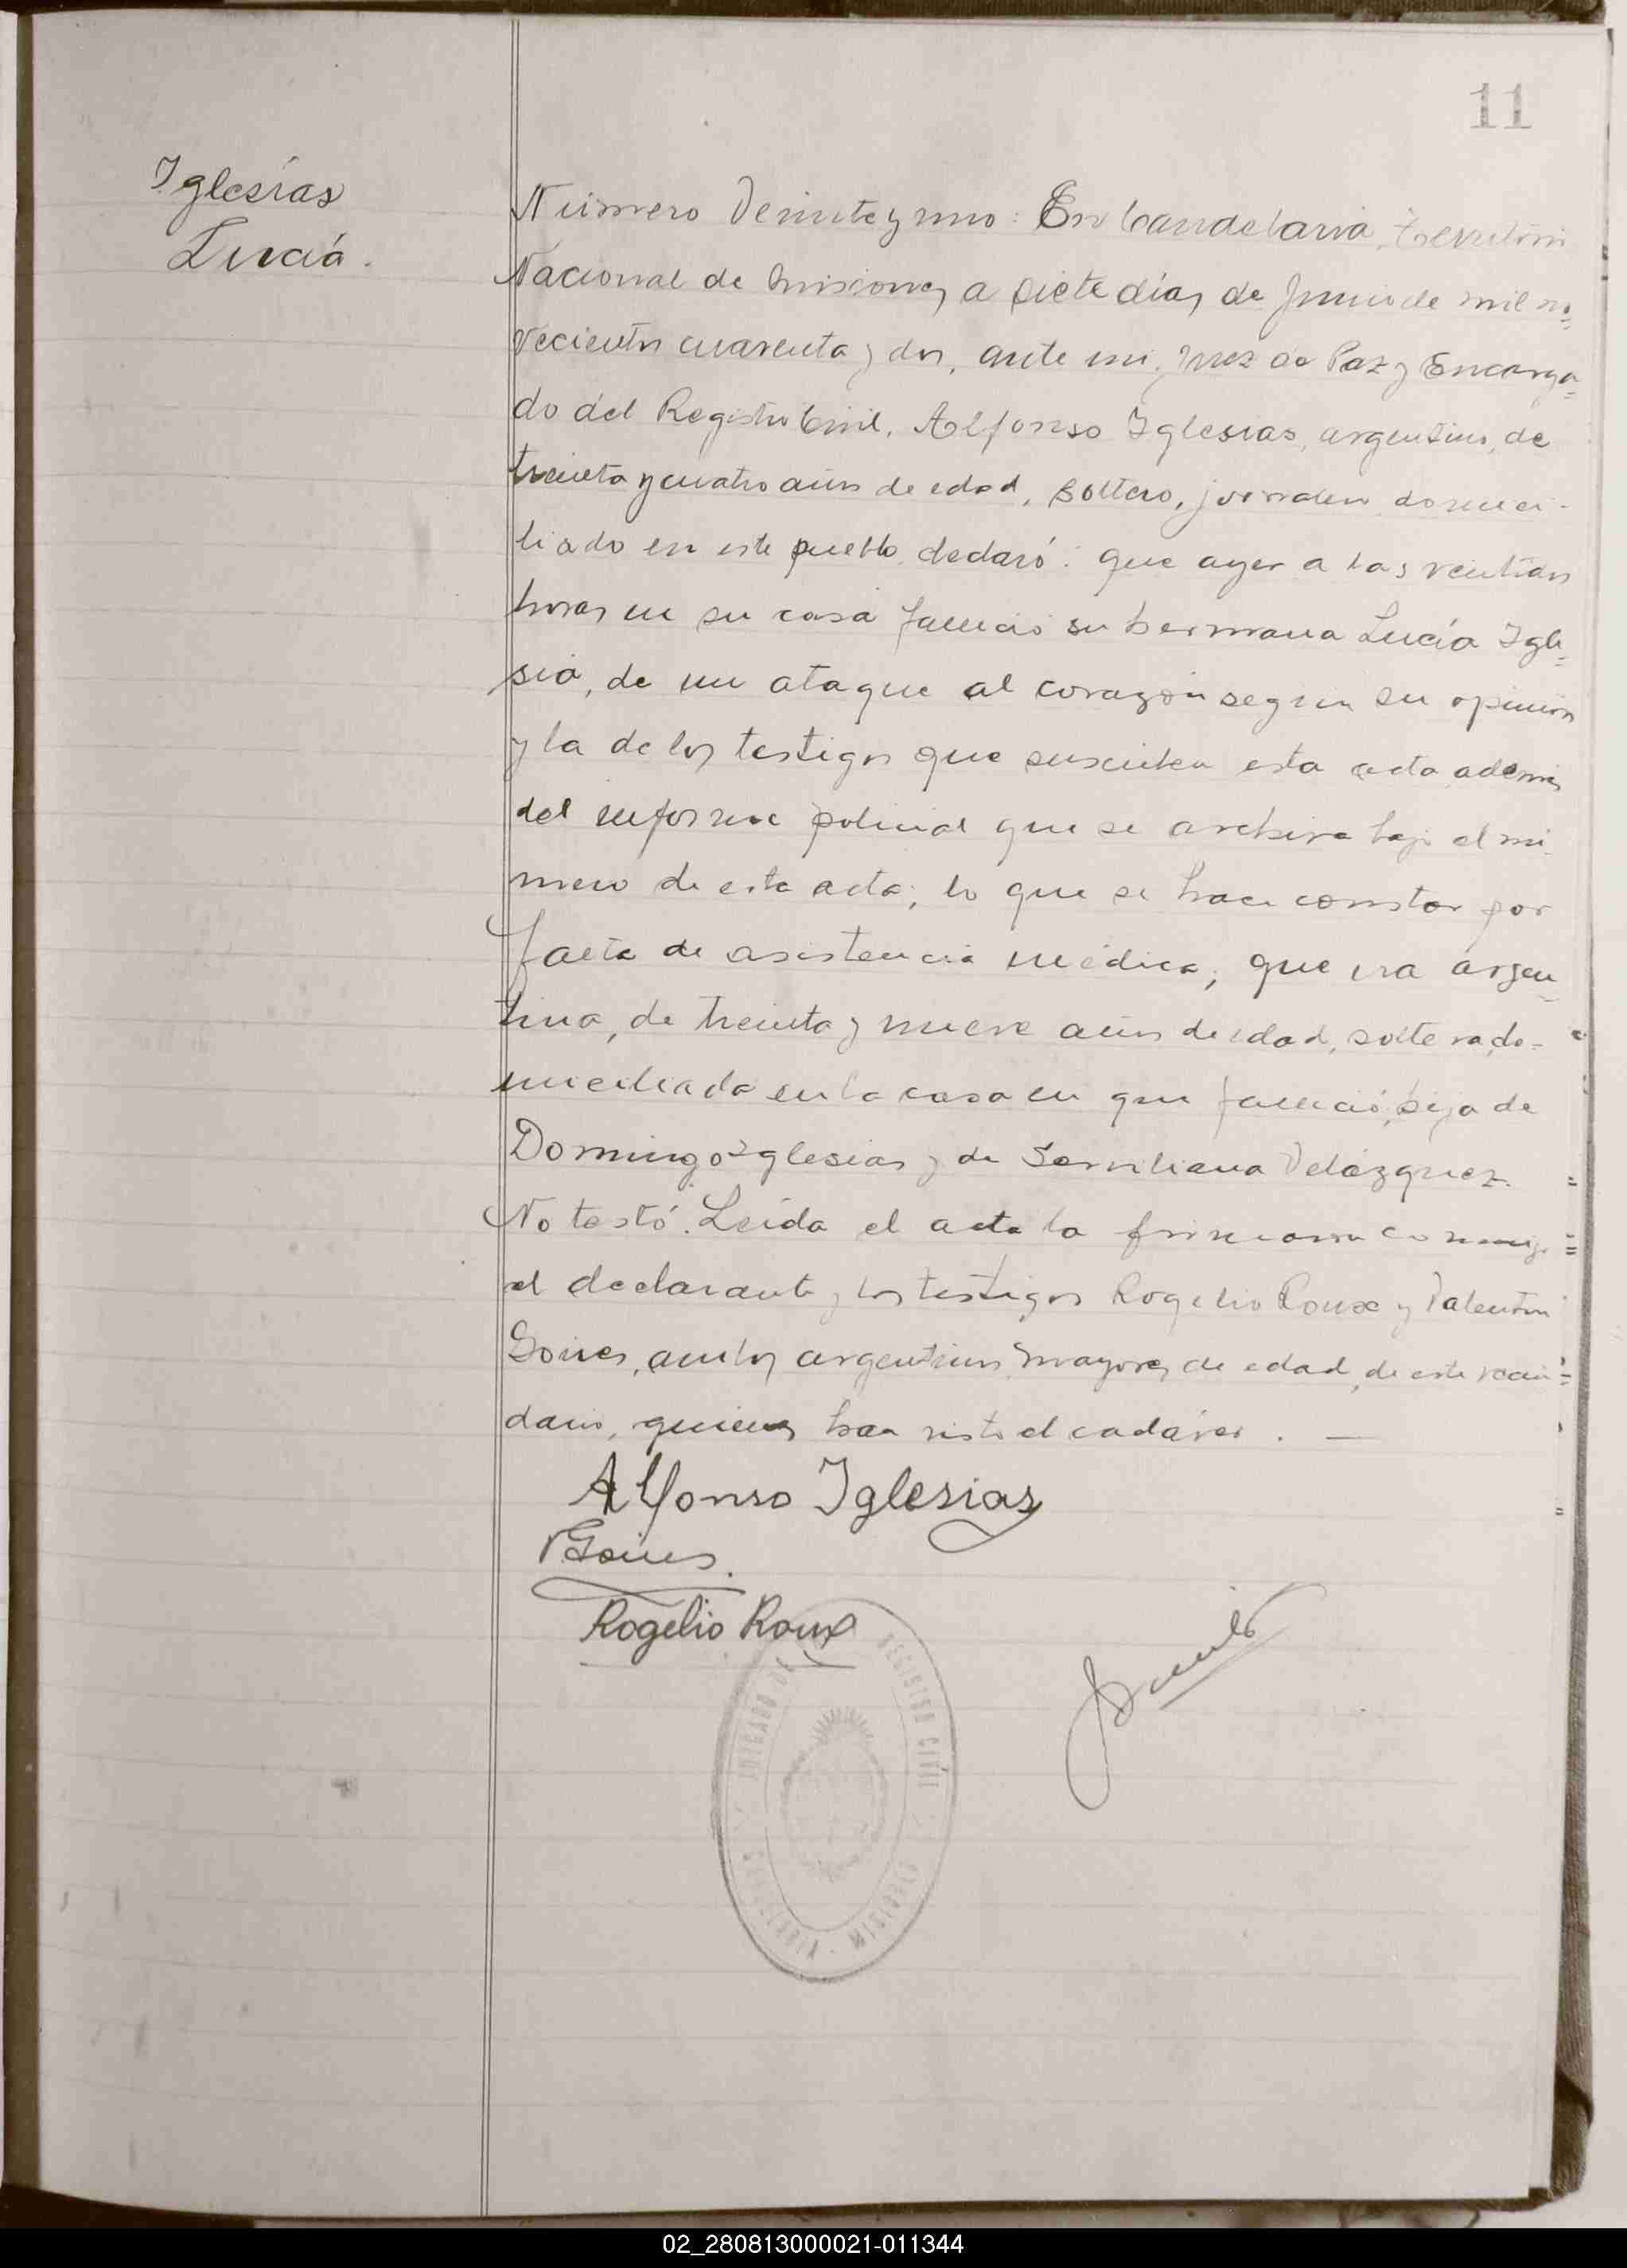 11
Iglesias
Lucía.
Número Veinte y uno: En Candelaria, Territorio
Nacional de Misiones, a siete días de Junio de mil no=
vecientos cuarenta y dos, ante mi, Juez de Paz y Encarga=
do del Registro Civil, Alfonso Iglesias, argentino, de
treinta y cuatro años de edad, soltero, jornalero, domici-
liado en este pueblo, declaró: que ayer a las veintidos
horas en su casa falleció su hermana Lucía Igle=
sia, de un ataque al corazón según su opinión
y la de los testigos que suscriben esta acta, además
del informe policial que se archiva bajo el nú-
mero de esta acta; lo que se hace constar por
falta de asistencia médica; que era argen=
tina, de treinta y nueve años de edad, soltera, do=
miciliada en la casa en que falleció, hija de
Domingo Iglesias y de Velázquez.
No testó. Leída el acta la firmaron conmigo
el declarante y los testigos Rogelio Roux y Valentín
Goires, ambos argentinos, mayores de edad, de este vecin=
dario, quienes han visto el cadáver. —
Alfonso Iglesias
VGoires.
Rogelio Roux
JUZGADO DE REGISTRO CIVIL
CANDELARIA - MISIONES
02_280813000021-011344